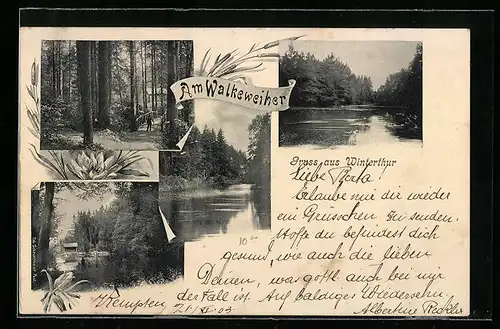 Am Walkeweiher
Gruss aus Winterthur
Liebe Berta!
Erlaube mir dir wieder
ein Grüsschen zu senden.
Hoffe du befindest dich
10
gesund, wie auch die lieben
Deinen, was gottl auch bei mir
der Fall ist. Auf baldiges Wiedersehn.
Kempten
Albertine